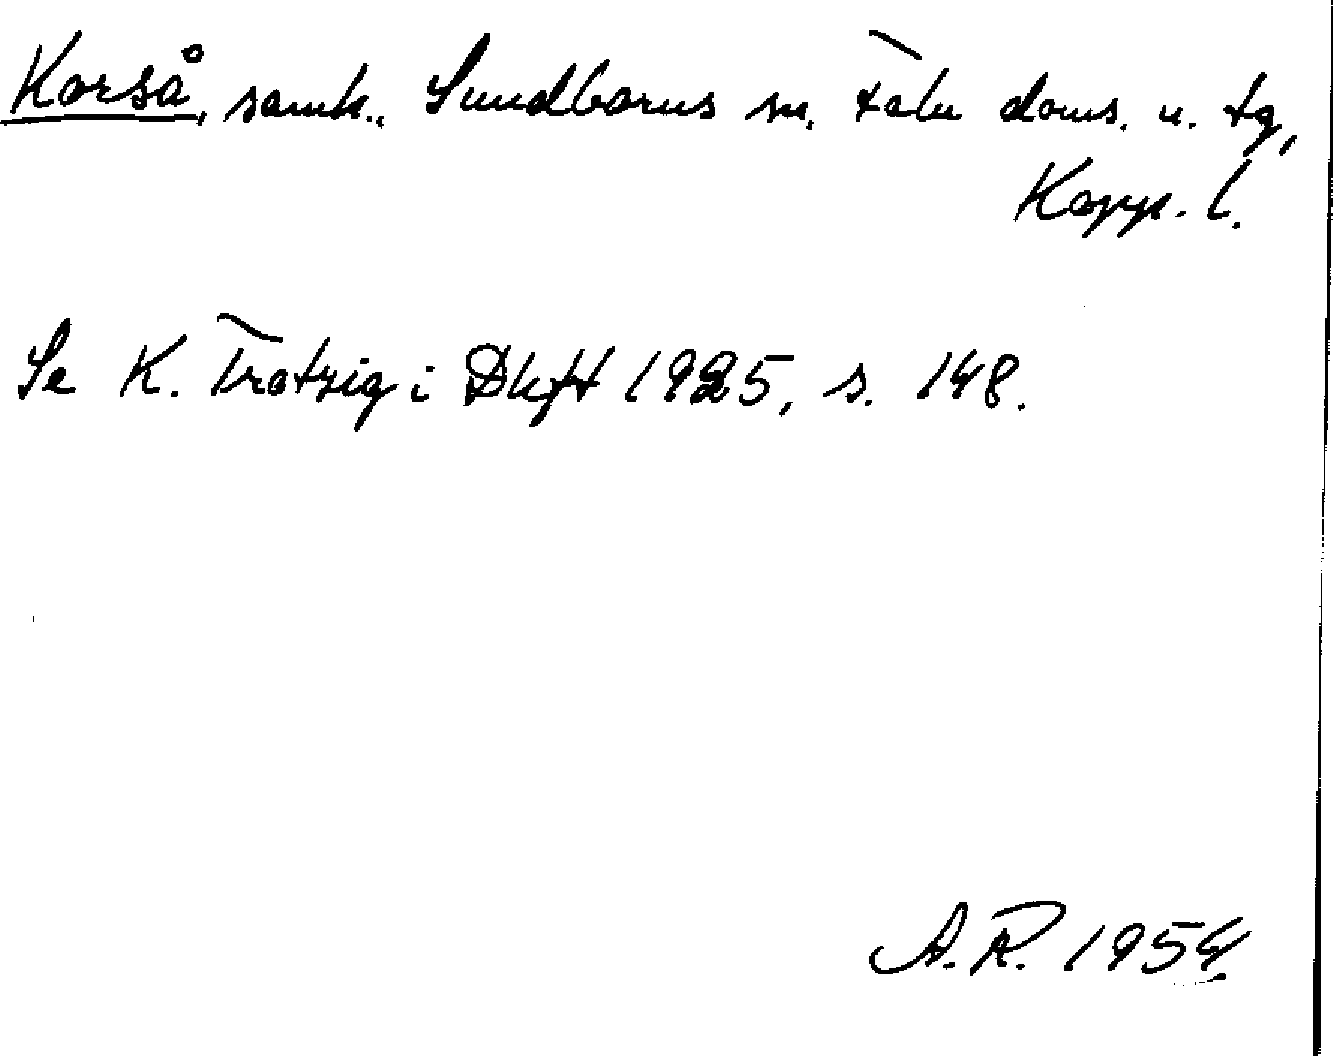 Korså, samh., Sundborns sn, Falu doms. n. tg,
Kopp. l.
Se K. Trotzig i Dhft 1925, s. 148.
A.R. 1954.